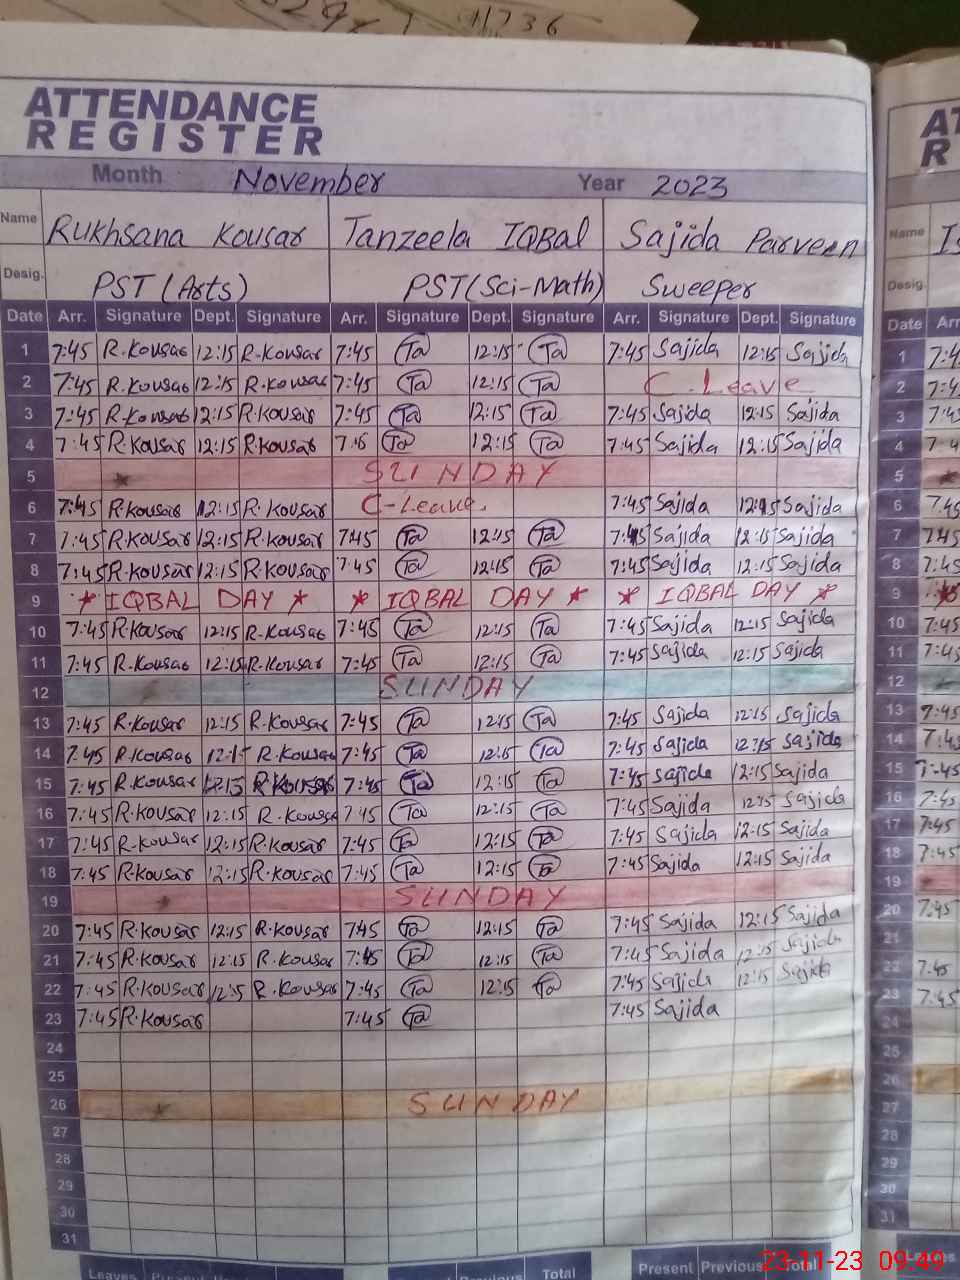 11736
ATTENDANCE
REGISTER
Month November Year 2023
Name Rukhsana Kousar Tanzeela IQBal Sajida Parveen Name
Desig. PST (Arts) PST(Sci-Math) Sweeper Desig.
Date Arr. Signature Dept. Signature Arr. Signature Dept. Signature Arr. Signature Dept. Signature Date
1 7:45 R.Kousar 12:15 R.Kousar 7:45 Ta 12:15 Ta 7:45 Sajida 12:15 Sajida 1
2 7:45 R.Kousar 12:15 R.Kousar 7:45 Ta 12:15 Ta C.Leave 2
3 7:45 R.Kousar 12:15 R.Kousar 7:45 Ta 12:15 Ta 7:45 Sajida 12:15 Sajida 3
4 7:45 R.Kousar 12:15 R.Kousar Ta 12:15 Ta 7:45 Sajida 12:15 Sajida 4
5 SUNDAY 5
6 7:45 R.Kousar 12:15 R.Kousar C-Leave. 7:45 Sajida 12:15 Sajida 6 7:45
7 7:45 R.Kousar 12:15 R.Kousar 7:45 Ta 12:15 Ta 7:45 Sajida 12:15 Sajida 7 7:45
8 7:45 R.Kousar 12:15 R.Kousar 7:45 Ta 12:15 Ta 7:45 Sajida 12:15 Sajida 8 7:45
9 * IQBAL DAY * * IQBAL DAY * * IQBAL DAY * 9
10 7:45 R.Kousar 12:15 R.Kousar 7:45 Ta 12:15 Ta 7:45 Sajida 12:15 Sajida 10 7:45
11 7:45 R.Kousar 12:15 R.Kousar 7:45 Ta 12:15 Ta 7:45 Sajida 12:15 Sajida 11
12 SUNDAY 12
13 7:45 R.Kousar 12:15 R.Kousar 7:45 Ta 12:15 Ta 7:45 Sajida 12:15 Sajida 13 7:45
14 7:45 R.Kousar 12:15 R.Kousar 7:45 Ta 12:15 Ta 7:45 Sajida 12:15 Sajida 14
15 7:45 R.Kousar 12:15 R.Kousar 7:45 Ta 12:15 Ta 7:45 Sajida 12:15 Sajida 15 7:45
16 7:45 R.Kousar 12:15 R.Kousar 7:45 Ta 12:15 Ta 7:45 Sajida 12:15 Sajida 16 7:45
17 7:45 R.Kousar 12:15 R.Kousar 7:45 Ta 12:15 Ta 7:45 Sajida 12:15 Sajida 17 7:45
18 7:45 R.Kousar 12:15 R.Kousar 7:45 Ta 12:15 Ta 7:45 Sajida 12:15 Sajida 18 7:45
19 SUNDAY 19
20 7:45 R.Kousar 12:15 R.Kousar 7:45 Ta 12:15 Ta 7:45 Sajida 12:15 Sajida 20 7:45
21 7:45 R.Kousar 12:15 R.Kousar 7:45 Ta 12:15 Ta 7:45 Sajida 12:15 Sajida 21
22 7:45 R.Kousar 12:15 R.Kousar 7:45 Ta 12:15 Ta 7:45 Sajida 12:15 Sajida 22 7:45
23 7:45 R.Kousar 7:45 Ta 7:45 Sajida 23 7:45
24 24
25 25
26 SUNDAY 26
27 27
28 28
29 29
30 30
31 31
Leaves Present Total Present Previous Total Leaves
23-11-23 09:49